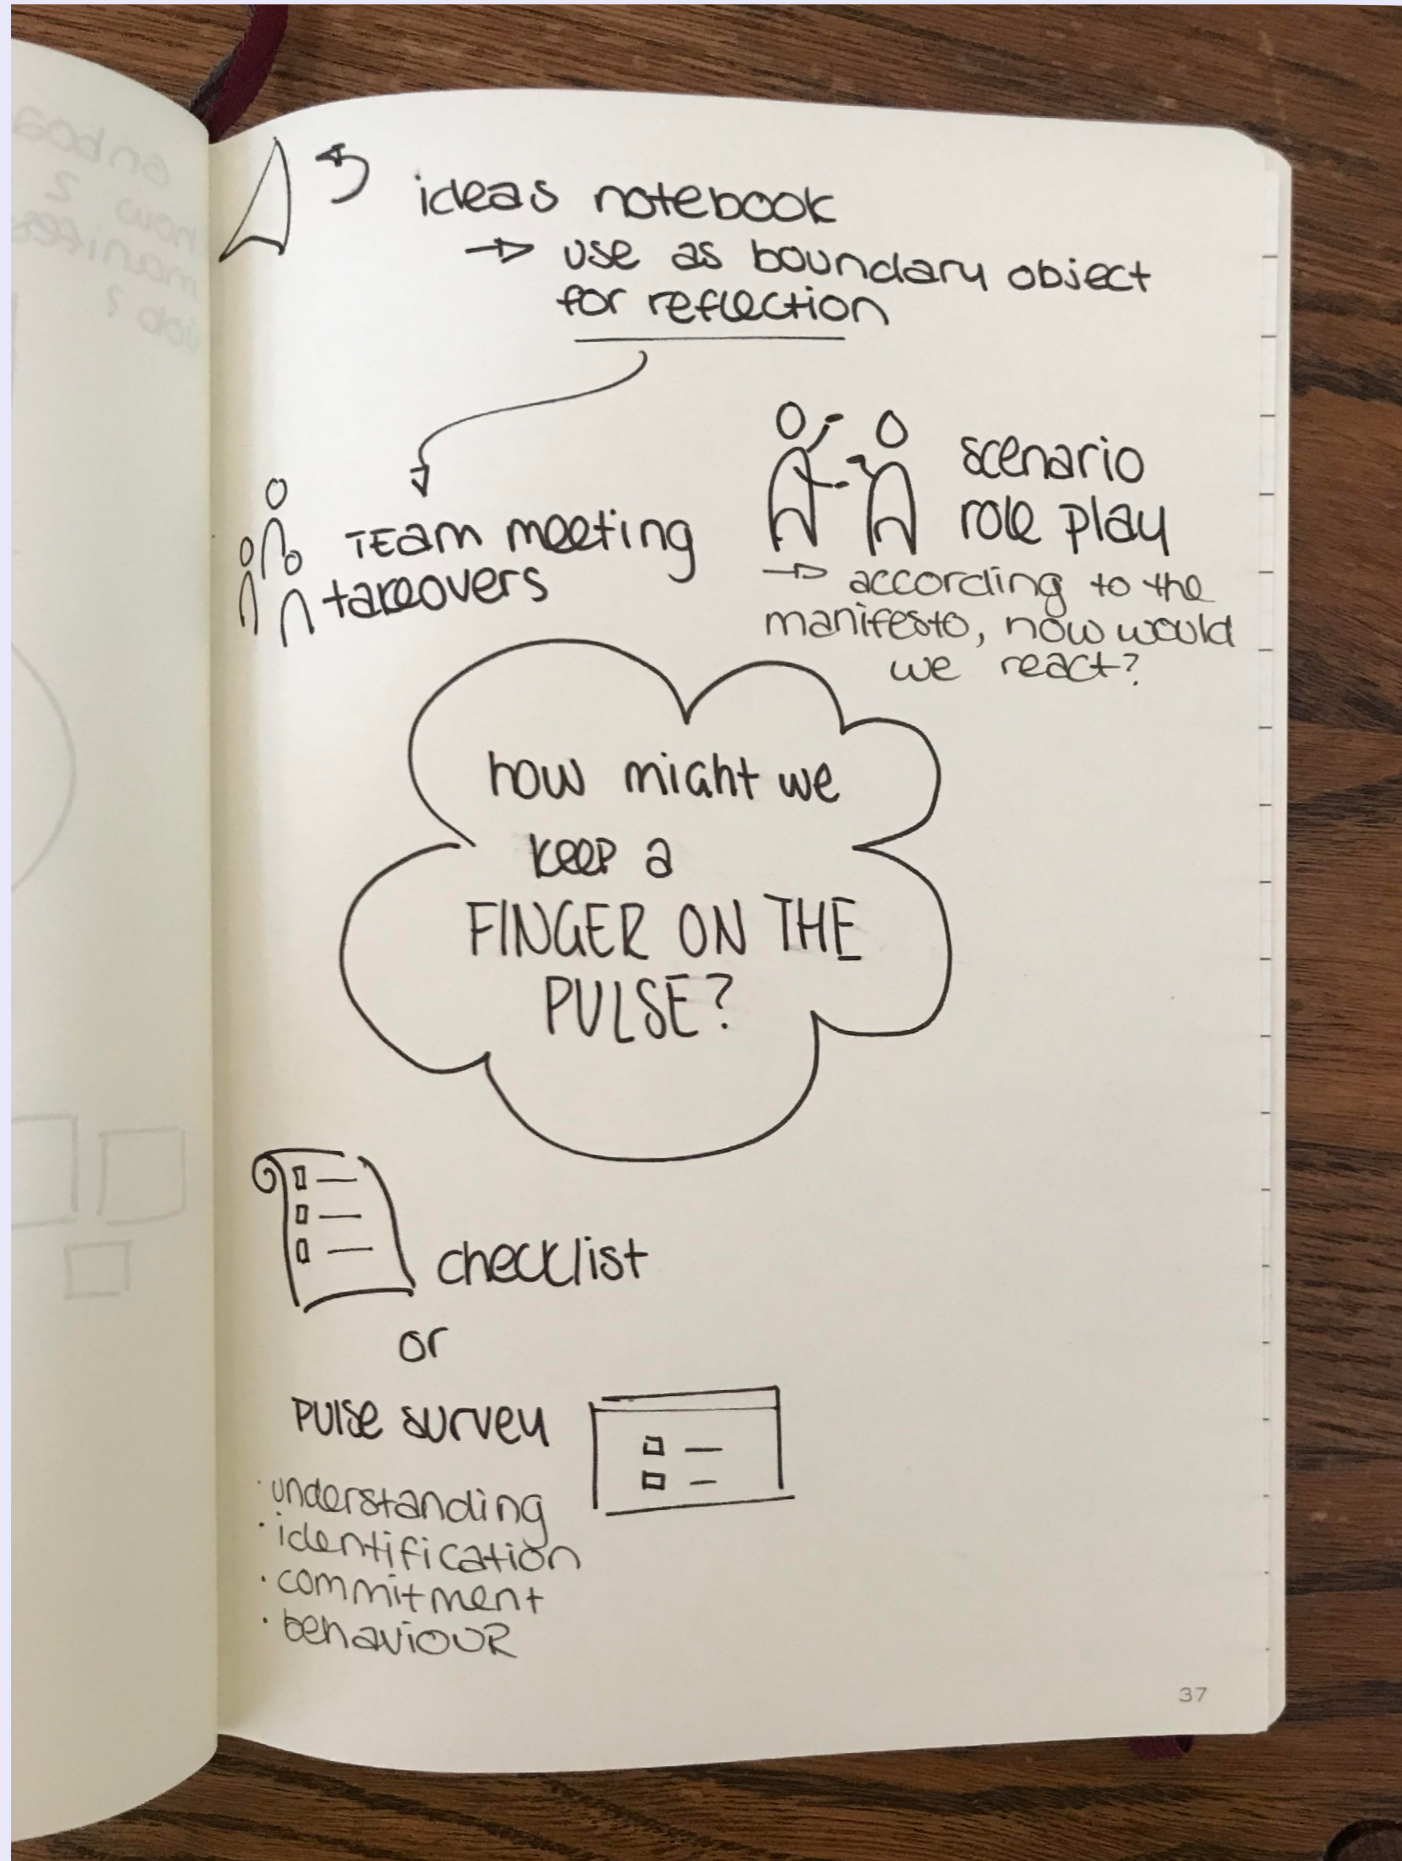 ideas notebook
→ use as boundary object
for reflection
TEam meeting
takeovers
scenario
role play
→ according to the
manifesto, how would
we react?
how might we
keep a
FINGER ON THE
PULSE?
checklist
or
PULSE survey
· understanding
· identification
· commitment
· behaviouR
37